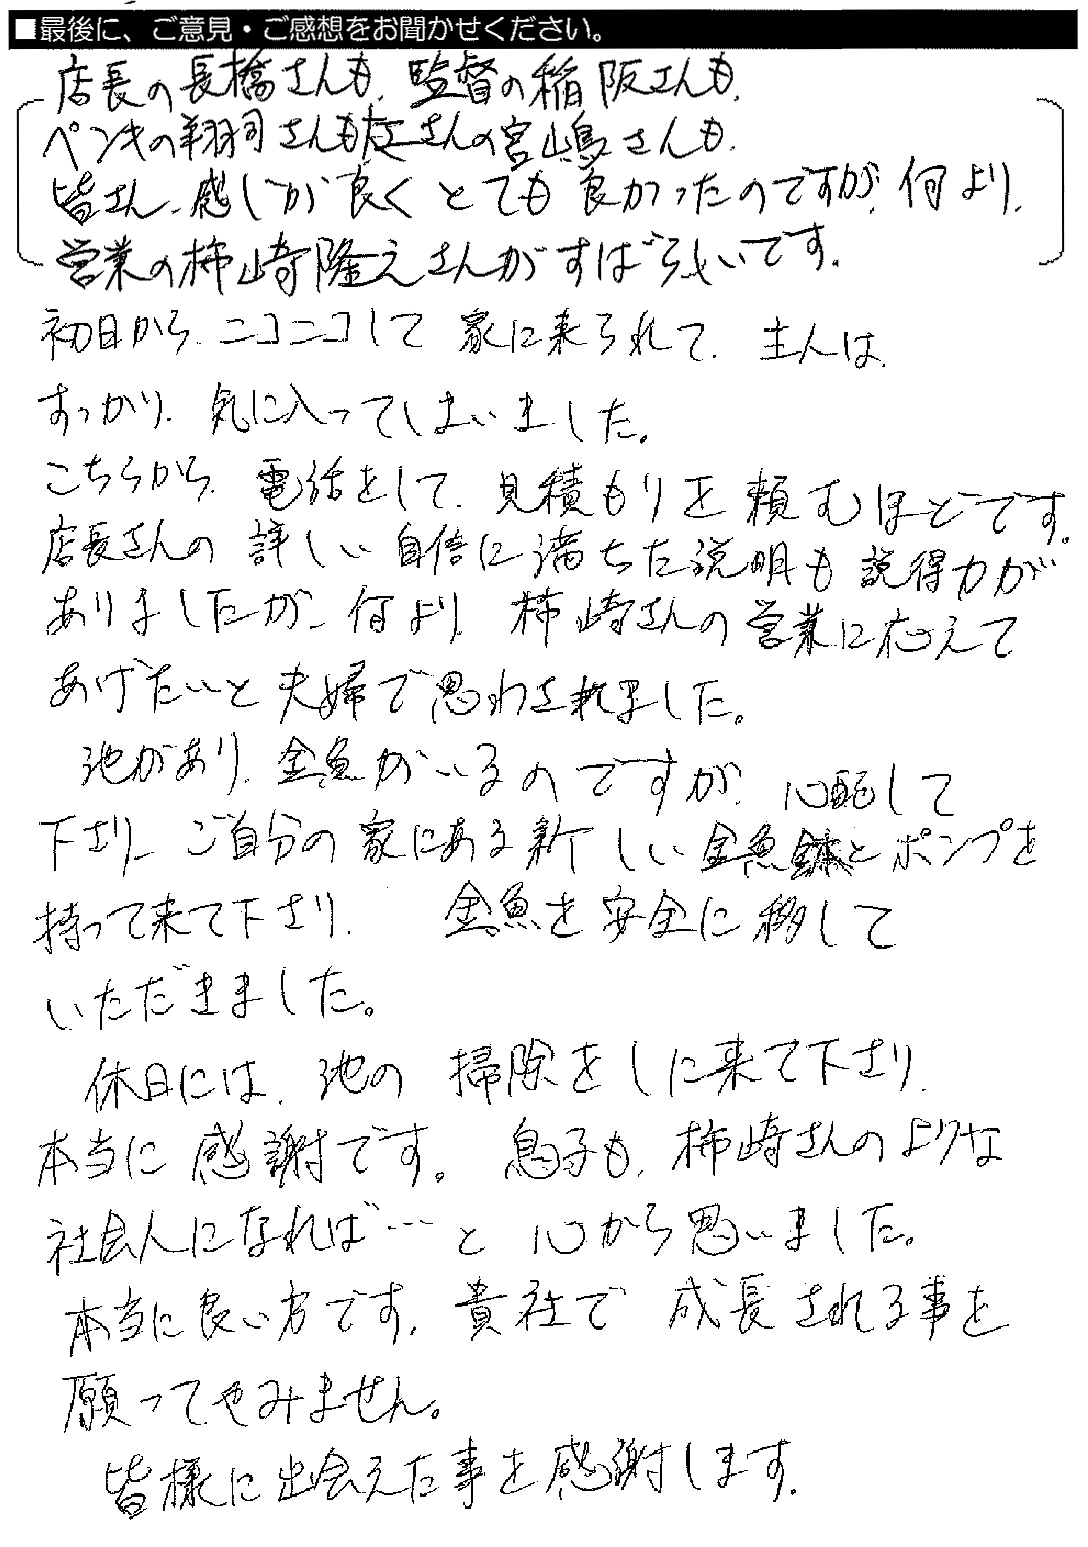 ■最後に、ご意見・ご感想をお聞かせください。
店長の長橋さんも、監督の稲阪さんも、
ペンキの翔司さんも さんの宮嶋さんも、
皆さん、感じが良くとても良かったのですが、何より、
営業の柿崎隆え さんがすばらしいです。
初日から、ニコニコして 家に来られて、主人は、
すっかり、気に入ってしまいました。
こちらから、電話をして、見積もりを頼むほどです。
店長さんの 詳しい 自信に満ちた説明も 説得力が
ありましたが、何より、柿崎さんの営業に応えて
あげたいと 夫婦で思わされました。
池があり、金魚がいるのですが、心配して
下さり、ご自分の家にある新しい金魚鉢とポンプを
持って来て下さり、金魚を安全に移して
いただきました。
休日には、池の 掃除をしに来て下さり、
本当に 感謝です。息子も、柿崎さんのような
社会人になれば…と 心から思いました。
本当に良い方です。貴社で 成長される事を
願ってやみません。
皆様に出会えた事を感謝します。